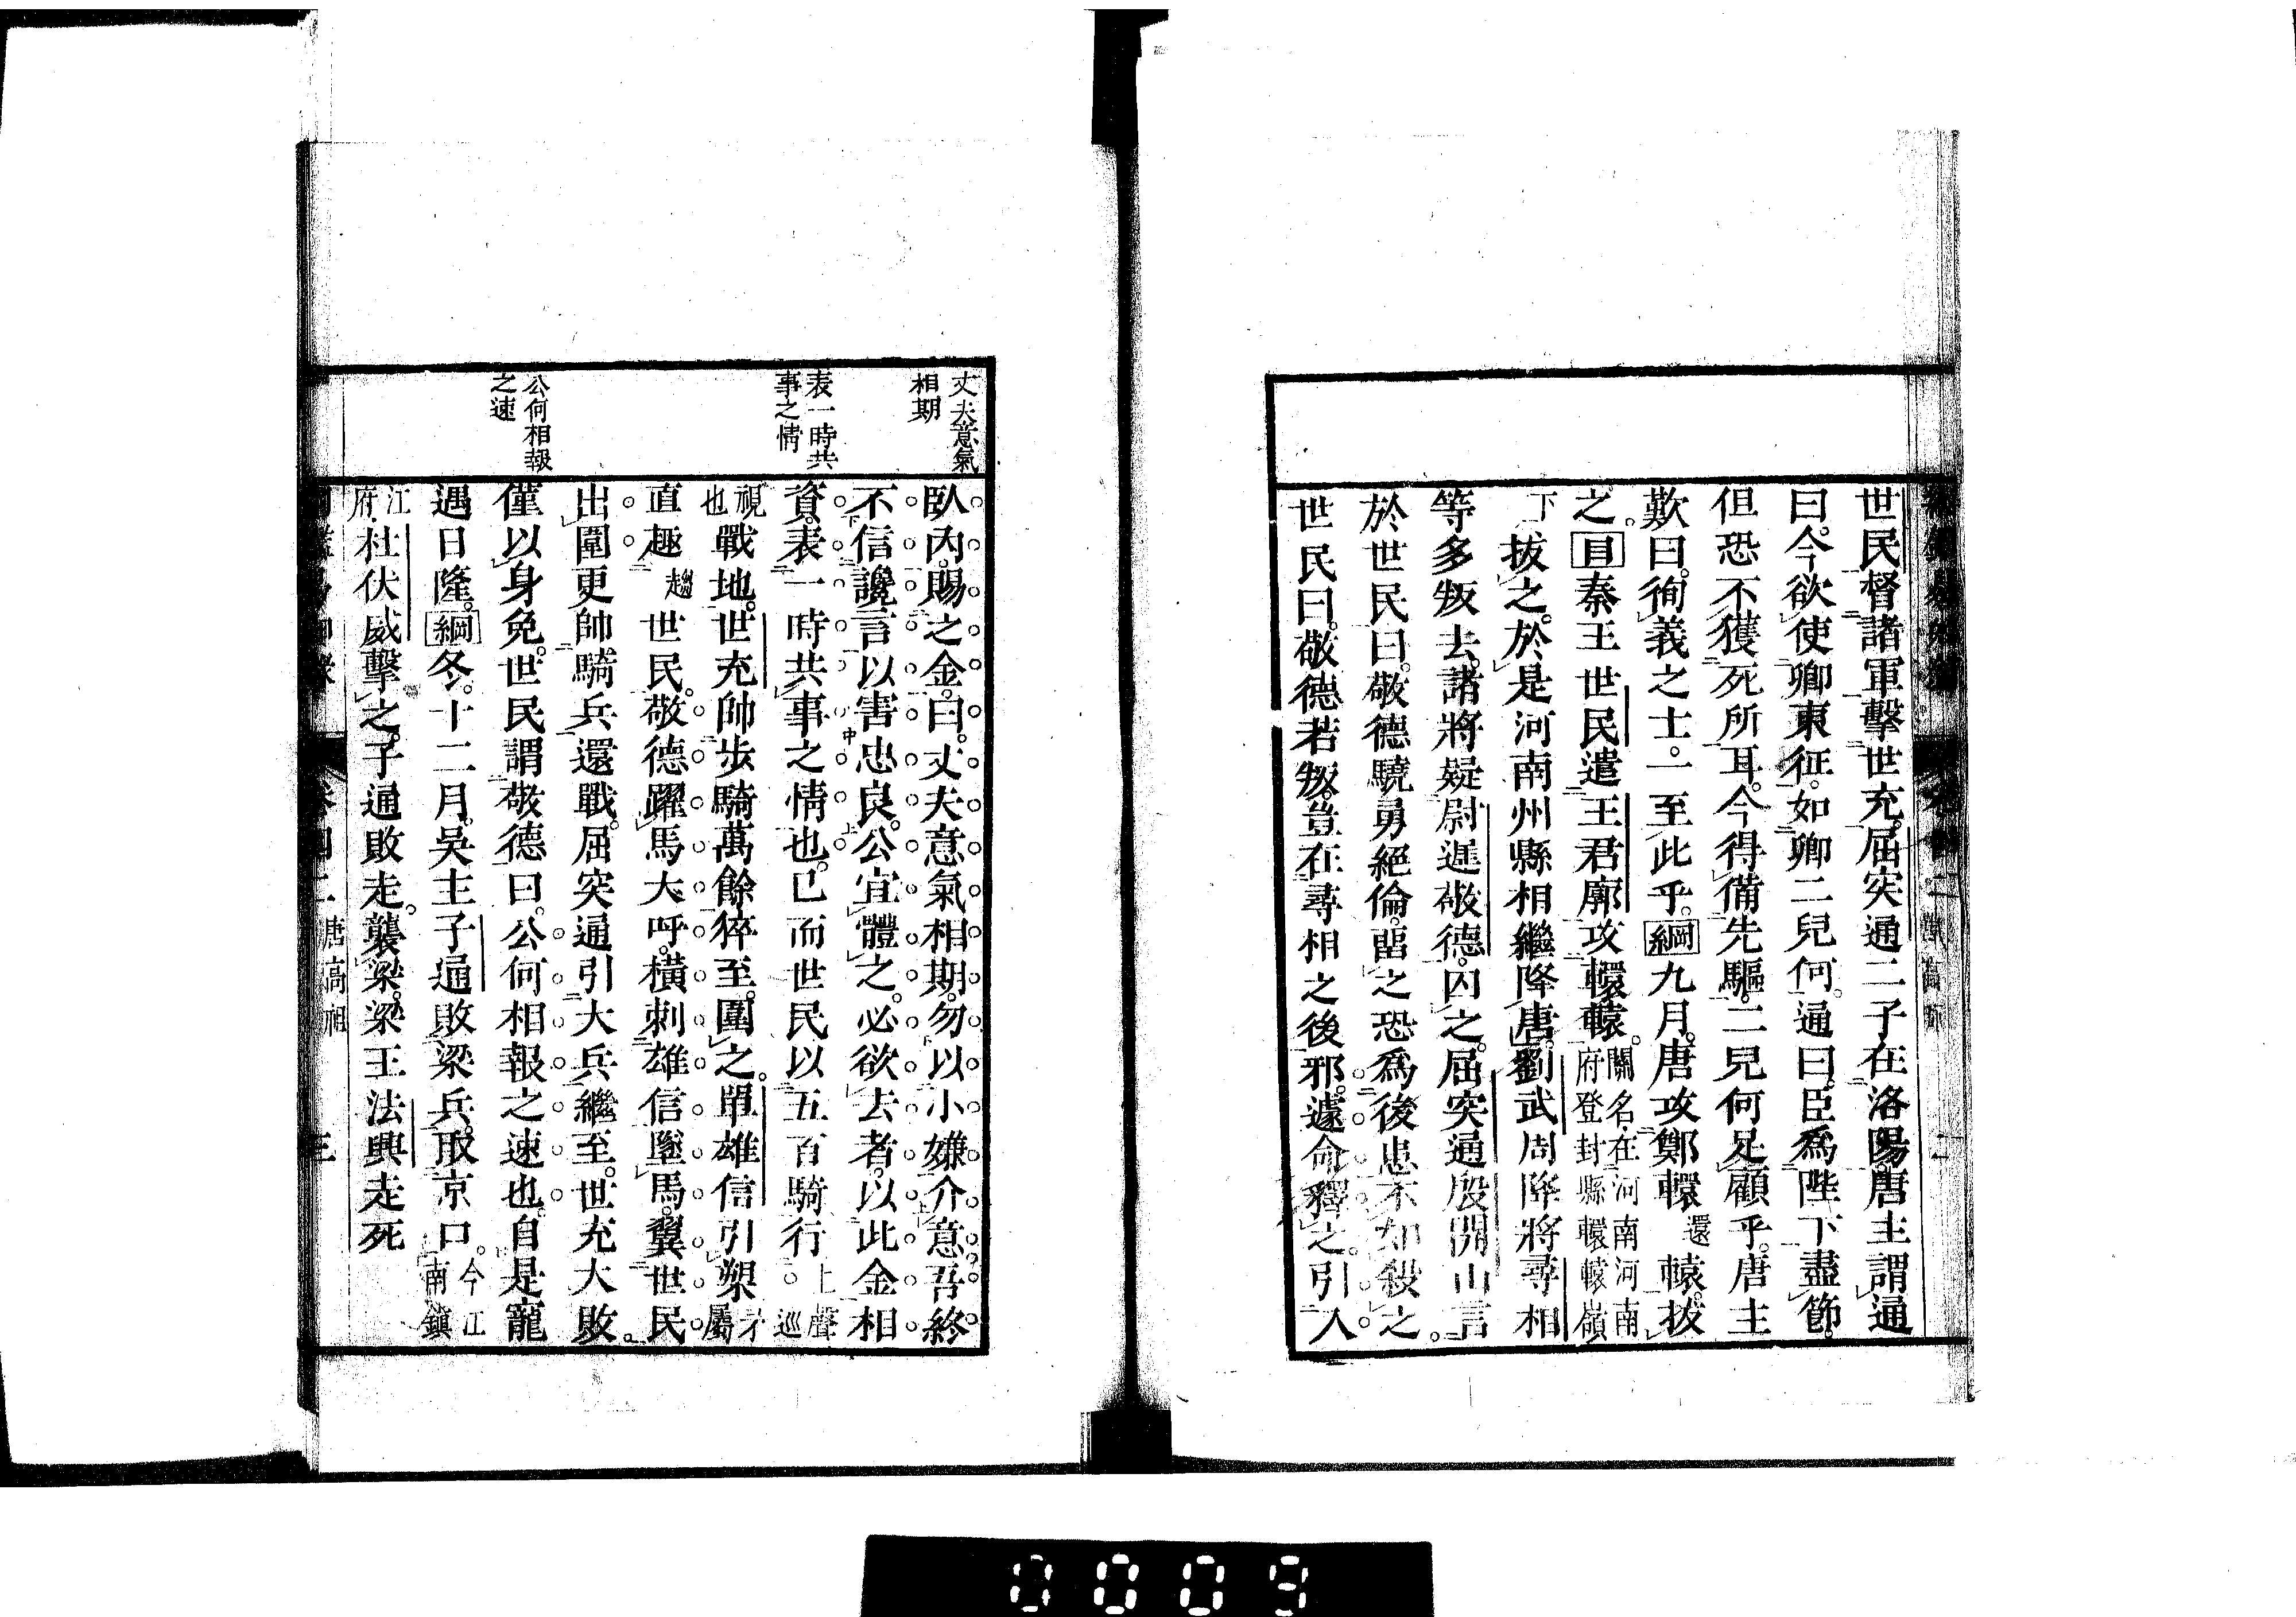 世民督諸軍擊世充。屈突通二子在洛陽。唐主謂通
曰。今欲使卿東征。如卿二兒何。通曰。臣爲陛下盡節。
但恐不獲死所耳。今得備先驅。二兒何足顧乎。唐主
歎曰。徇義之士。一至此乎。綱九月。唐攻鄭轘還轅。拔
之。目秦王世民遣王君廓攻轘轅。關名。在河南河南
府登封縣轘轅嶺
下拔之。於是河南州縣相繼降唐。劉武周降將尋相
等多叛去。諸將疑尉遲敬德。囚之。屈突通殷開山言
於世民曰。敬德驍勇絕倫。留之恐爲後患。不如殺之。
世民曰。敬德若叛。豈在尋相之後邪。遽命釋之。引入
丈夫意氣
相期
表一時共
事之情
公何相報
之速
臥內。賜之金。曰。丈夫意氣相期。勿以小嫌介意。吾終
不信讒言以害忠良。公宜體之。必欲去者。以此金相
資。表一時共事之情也。已而世民以五百騎行上聲巡
視
也戰地。世充帥步騎萬餘猝至。圍之。單雄信引槊矛
屬
直趣趨世民。敬德躍馬大呼。橫刺雄信墜馬。翼世民
出圍。更帥騎兵還戰。屈突通引大兵繼至。世充大敗。
僅以身免。世民謂敬德曰。公何相報之速也。自是寵
遇日隆。綱冬。十二月。吳主子通敗梁兵。取京口。今江
南鎮
江
府杜伏威擊之。子通敗走。襲梁。梁王法興走死
卷四十二 唐高祖 三
0009